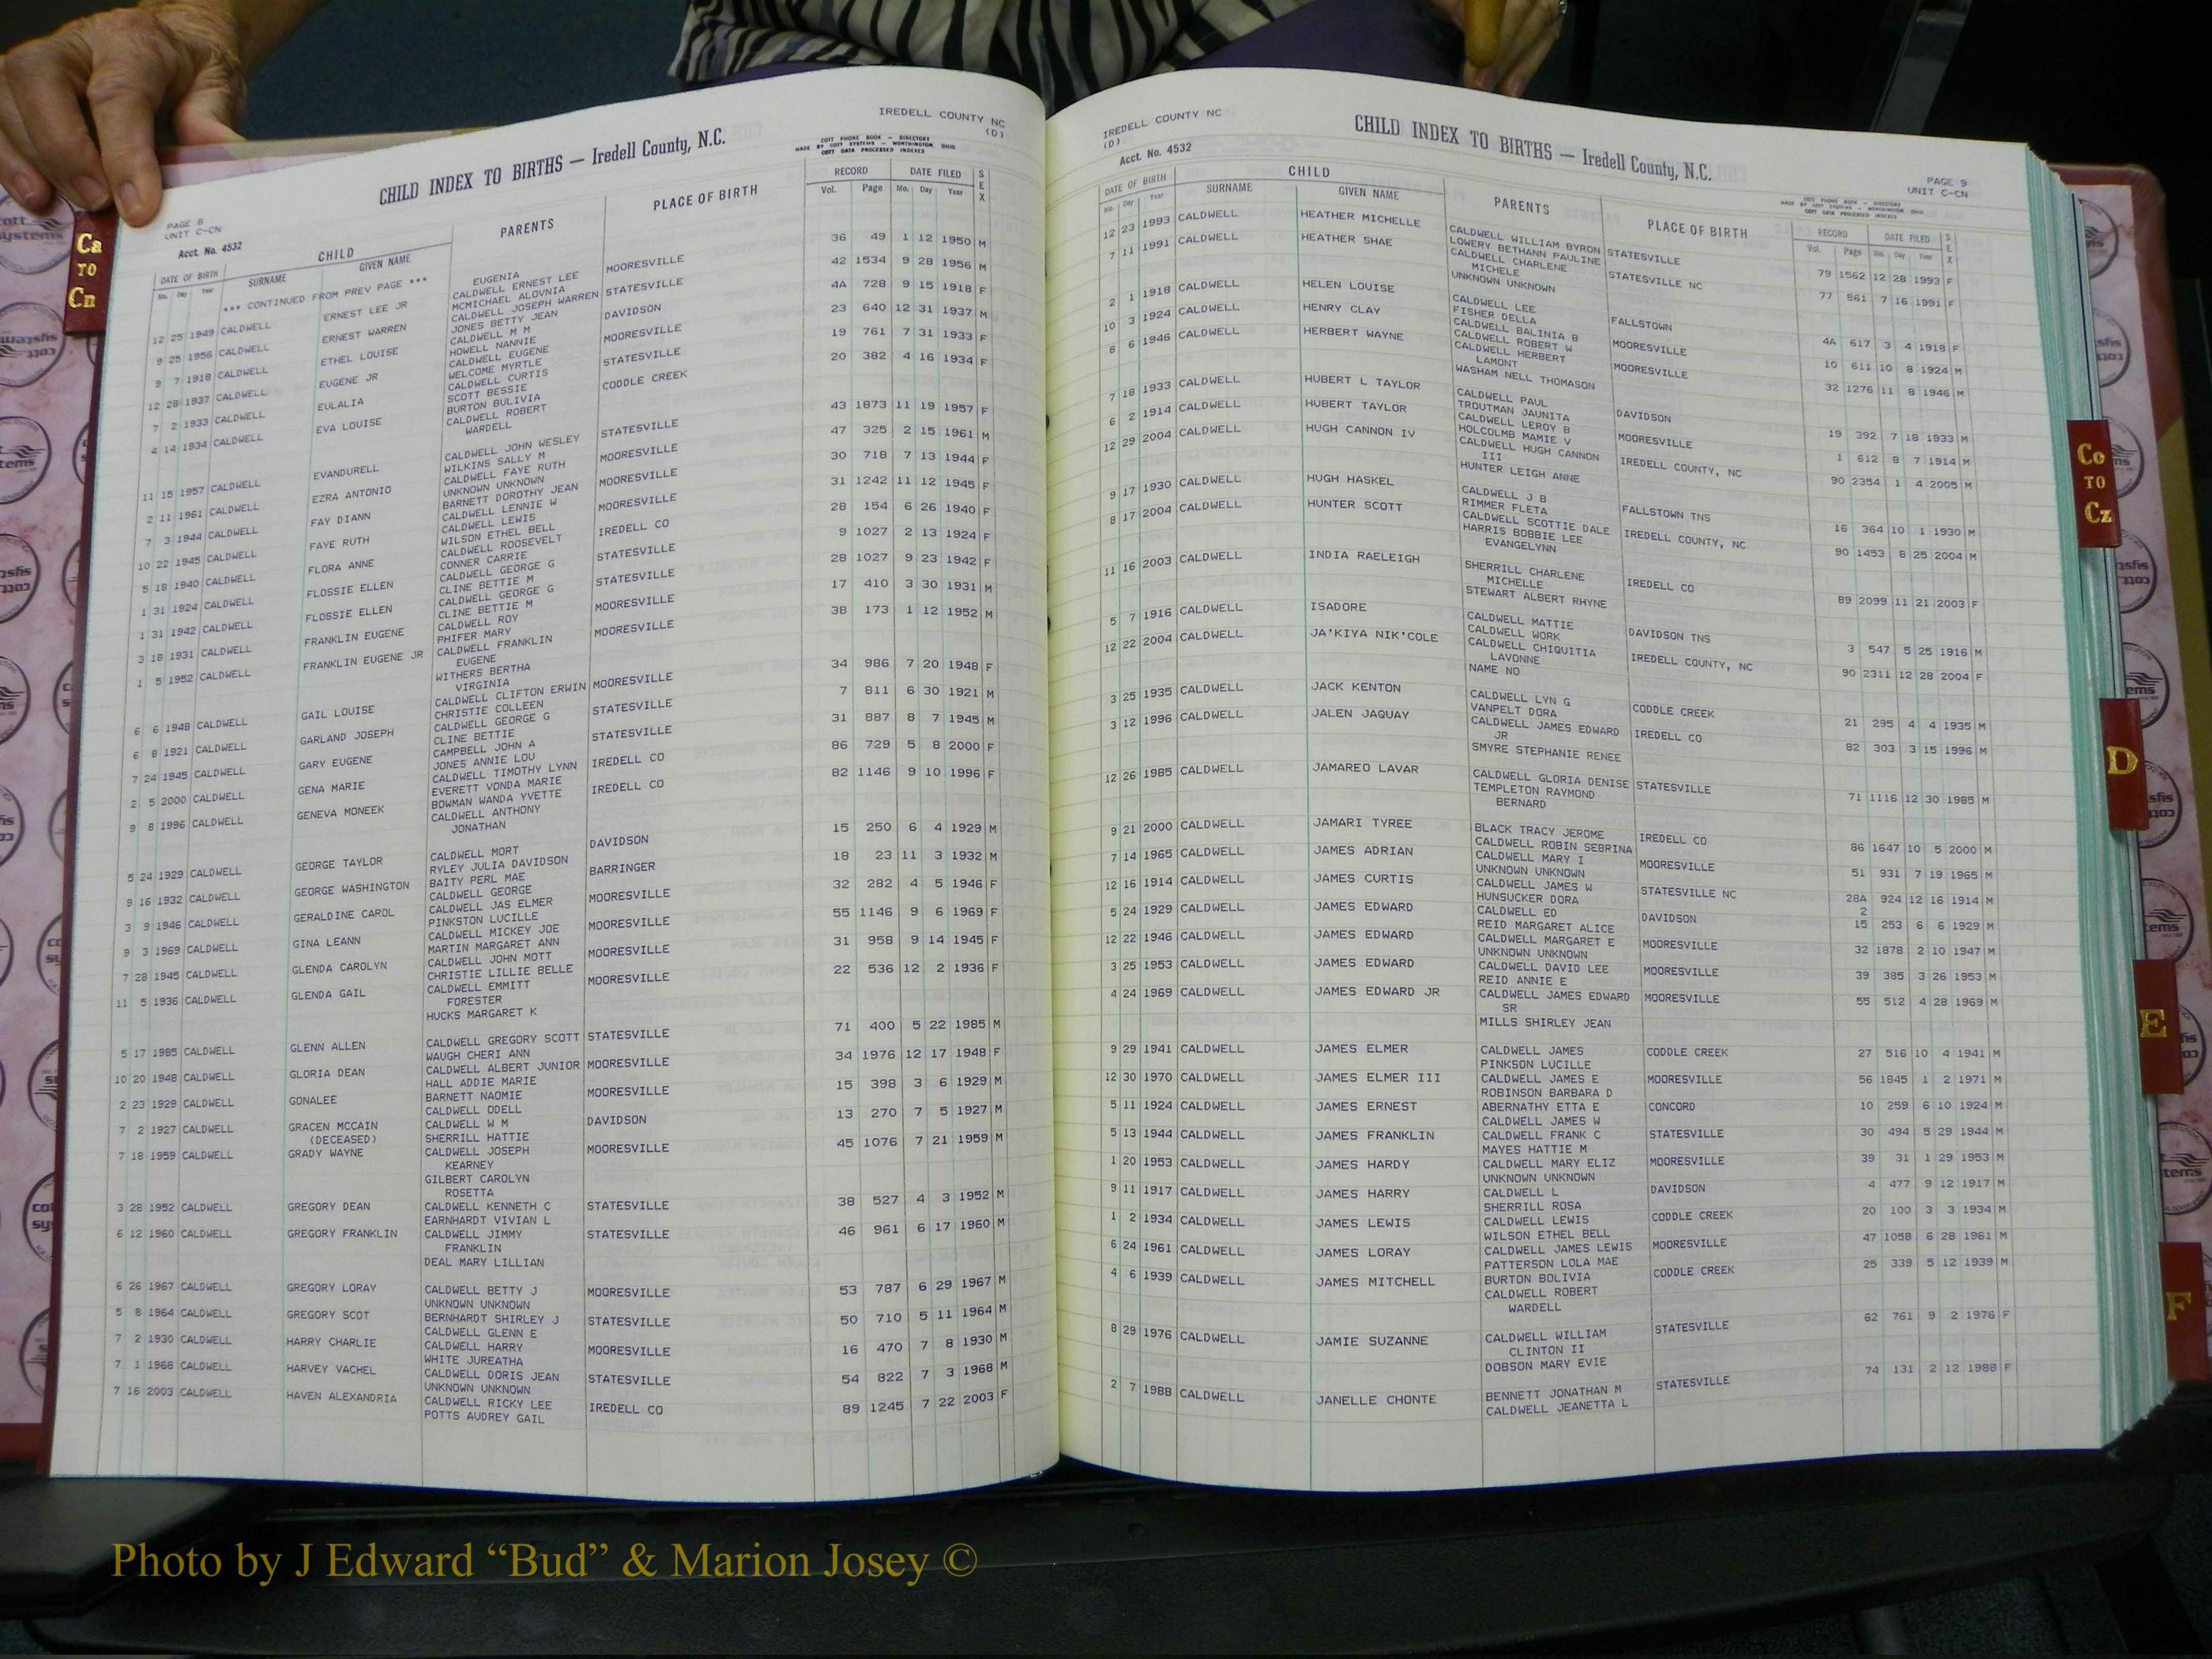 IREDELL COUNTY NC
(D)
CHILD INDEX TO BIRTHS — Iredell County, N.C.
COTT PHONE BOOK — DIRECTORY
MADE BY COTT SYSTEMS — WORTHINGTON, OHIO
COTT DATA PROCESSED INDEXES
PAGE 8
UNIT C-CN
Acct. No. 4532
DATE OF BIRTH CHILD PARENTS PLACE OF BIRTH RECORD DATE FILED SEX
Mo. Day Year SURNAME GIVEN NAME Vol. Page Mo. Day Year
*** CONTINUED FROM PREV PAGE ***
EUGENIA
12 25 1949 CALDWELL ERNEST LEE JR CALDWELL ERNEST LEE MOORESVILLE 36 49 1 12 1950 M
MCMICHAEL ALOVNIA
9 25 1956 CALDWELL ERNEST WARREN CALDWELL JOSEPH WARREN STATESVILLE 42 1534 9 28 1956 M
JONES BETTY JEAN
9 7 1918 CALDWELL ETHEL LOUISE CALDWELL M M DAVIDSON 4A 728 9 15 1918 F
HOWELL NANNIE
12 28 1937 CALDWELL EUGENE JR CALDWELL EUGENE MOORESVILLE 23 640 12 31 1937 M
WELCOME MYRTLE
7 2 1933 CALDWELL EULALIA CALDWELL CURTIS STATESVILLE 19 761 7 31 1933 F
SCOTT BESSIE
4 14 1934 CALDWELL EVA LOUISE BURTON BULIVIA CODDLE CREEK 20 382 4 16 1934 F
CALDWELL ROBERT
WARDELL
11 15 1957 CALDWELL EVANDURELL CALDWELL JOHN WESLEY STATESVILLE 43 1873 11 19 1957 F
WILKINS SALLY M
2 11 1961 CALDWELL EZRA ANTONIO CALDWELL FAYE RUTH MOORESVILLE 47 325 2 15 1961 M
UNKNOWN UNKNOWN
7 3 1944 CALDWELL FAY DIANN BARNETT DOROTHY JEAN MOORESVILLE 30 718 7 13 1944 F
CALDWELL LENNIE W
10 22 1945 CALDWELL FAYE RUTH CALDWELL LEWIS MOORESVILLE 31 1242 11 12 1945 F
WILSON ETHEL BELL
5 18 1940 CALDWELL FLORA ANNE CALDWELL ROOSEVELT IREDELL CO 28 154 6 26 1940 F
CONNER CARRIE
1 31 1924 CALDWELL FLOSSIE ELLEN CALDWELL GEORGE G STATESVILLE 9 1027 2 13 1924 F
CLINE BETTIE M
1 31 1942 CALDWELL FLOSSIE ELLEN CALDWELL GEORGE G STATESVILLE 28 1027 9 23 1942 F
CLINE BETTIE M
3 18 1931 CALDWELL FRANKLIN EUGENE CALDWELL ROY MOORESVILLE 17 410 3 30 1931 M
PHIFER MARY
1 5 1952 CALDWELL FRANKLIN EUGENE JR CALDWELL FRANKLIN MOORESVILLE 38 173 1 12 1952 M
EUGENE
WITHERS BERTHA
VIRGINIA
6 6 1948 CALDWELL GAIL LOUISE CALDWELL CLIFTON ERWIN MOORESVILLE 34 986 7 20 1948 F
CHRISTIE COLLEEN
6 8 1921 CALDWELL GARLAND JOSEPH CALDWELL GEORGE G STATESVILLE 7 811 6 30 1921 M
CLINE BETTIE
7 24 1945 CALDWELL GARY EUGENE CAMPBELL JOHN A STATESVILLE 31 887 8 7 1945 M
JONES ANNIE LOU
2 5 2000 CALDWELL GENA MARIE CALDWELL TIMOTHY LYNN IREDELL CO 86 729 5 8 2000 F
EVERETT VONDA MARIE
9 8 1996 CALDWELL GENEVA MONEEK BOWMAN WANDA YVETTE IREDELL CO 82 1146 9 10 1996 F
CALDWELL ANTHONY
JONATHAN
5 24 1929 CALDWELL GEORGE TAYLOR CALDWELL MORT DAVIDSON 15 250 6 4 1929 M
RYLEY JULIA DAVIDSON
9 16 1932 CALDWELL GEORGE WASHINGTON BAITY PERL MAE BARRINGER 18 23 11 3 1932 M
CALDWELL GEORGE
3 9 1946 CALDWELL GERALDINE CAROL CALDWELL JAS ELMER MOORESVILLE 32 282 4 5 1946 F
PINKSTON LUCILLE
9 3 1969 CALDWELL GINA LEANN CALDWELL MICKEY JOE MOORESVILLE 55 1146 9 6 1969 F
MARTIN MARGARET ANN
7 28 1945 CALDWELL GLENDA CAROLYN CALDWELL JOHN MOTT MOORESVILLE 31 958 9 14 1945 F
CHRISTIE LILLIE BELLE
11 5 1936 CALDWELL GLENDA GAIL CALDWELL EMMITT MOORESVILLE 22 536 12 2 1936 F
FORESTER
HUCKS MARGARET K
5 17 1985 CALDWELL GLENN ALLEN CALDWELL GREGORY SCOTT STATESVILLE 71 400 5 22 1985 M
WAUGH CHERI ANN
10 20 1948 CALDWELL GLORIA DEAN CALDWELL ALBERT JUNIOR MOORESVILLE 34 1976 12 17 1948 F
HALL ADDIE MARIE
2 23 1929 CALDWELL GONALEE BARNETT NAOMIE MOORESVILLE 15 398 3 6 1929 M
CALDWELL ODELL
7 2 1927 CALDWELL GRACEN MCCAIN CALDWELL W M DAVIDSON 13 270 7 5 1927 M
(DECEASED) SHERRILL HATTIE
7 18 1959 CALDWELL GRADY WAYNE CALDWELL JOSEPH MOORESVILLE 45 1076 7 21 1959 M
KEARNEY
GILBERT CAROLYN
ROSETTA
3 28 1952 CALDWELL GREGORY DEAN CALDWELL KENNETH C STATESVILLE 38 527 4 3 1952 M
EARNHARDT VIVIAN L
6 12 1960 CALDWELL GREGORY FRANKLIN CALDWELL JIMMY STATESVILLE 46 961 6 17 1960 M
FRANKLIN
DEAL MARY LILLIAN
6 26 1967 CALDWELL GREGORY LORAY CALDWELL BETTY J MOORESVILLE 53 787 6 29 1967 M
UNKNOWN UNKNOWN
5 8 1964 CALDWELL GREGORY SCOT BERNHARDT SHIRLEY J STATESVILLE 50 710 5 11 1964 M
CALDWELL GLENN E
7 2 1930 CALDWELL HARRY CHARLIE CALDWELL HARRY MOORESVILLE 16 470 7 8 1930 M
WHITE JUREATHA
7 1 1968 CALDWELL HARVEY VACHEL CALDWELL DORIS JEAN STATESVILLE 54 822 7 3 1968 M
UNKNOWN UNKNOWN
7 16 2003 CALDWELL HAVEN ALEXANDRIA CALDWELL RICKY LEE IREDELL CO 89 1245 7 22 2003 F
POTTS AUDREY GAIL
IREDELL COUNTY NC
(D)
CHILD INDEX TO BIRTHS — Iredell County, N.C.
Acct. No. 4532
PAGE 9
UNIT C-CN
COTT PHONE BOOK — DIRECTORY
MADE BY COTT SYSTEMS — WORTHINGTON, OHIO
COTT DATA PROCESSED INDEXES
DATE OF BIRTH CHILD PARENTS PLACE OF BIRTH RECORD DATE FILED SEX
Mo. Day Year SURNAME GIVEN NAME Vol. Page Mo. Day Year
12 23 1993 CALDWELL HEATHER MICHELLE CALDWELL WILLIAM BYRON STATESVILLE 79 1562 12 28 1993 F
LOWERY BETHANN PAULINE
7 11 1991 CALDWELL HEATHER SHAE CALDWELL CHARLENE STATESVILLE NC 77 861 7 16 1991 F
MICHELE
UNKNOWN UNKNOWN
2 1 1918 CALDWELL HELEN LOUISE CALDWELL LEE FALLSTOWN 4A 617 3 4 1918 F
FISHER DELLA
10 3 1924 CALDWELL HENRY CLAY CALDWELL BALINIA B MOORESVILLE 10 611 10 8 1924 M
CALDWELL ROBERT W
8 6 1946 CALDWELL HERBERT WAYNE CALDWELL HERBERT MOORESVILLE 32 1276 11 8 1946 M
LAMONT
WASHAM NELL THOMASON
7 18 1933 CALDWELL HUBERT L TAYLOR CALDWELL PAUL DAVIDSON 19 392 7 18 1933 M
TROUTMAN JAUNITA
6 2 1914 CALDWELL HUBERT TAYLOR CALDWELL LEROY B MOORESVILLE 1 612 8 7 1914 M
HOLCOLMB MAMIE V
12 29 2004 CALDWELL HUGH CANNON IV CALDWELL HUGH CANNON IREDELL COUNTY, NC 90 2354 1 4 2005 M
III
HUNTER LEIGH ANNE
9 17 1930 CALDWELL HUGH HASKEL CALDWELL J B FALLSTOWN TNS 16 364 10 1 1930 M
RIMMER FLETA
8 17 2004 CALDWELL HUNTER SCOTT CALDWELL SCOTTIE DALE IREDELL COUNTY, NC 90 1453 8 25 2004 M
HARRIS BOBBIE LEE
EVANGELYNN
11 16 2003 CALDWELL INDIA RAELEIGH SHERRILL CHARLENE IREDELL CO 89 2099 11 21 2003 F
MICHELLE
STEWART ALBERT RHYNE
5 7 1916 CALDWELL ISADORE CALDWELL MATTIE DAVIDSON TNS 3 547 5 25 1916 M
CALDWELL WORK
12 22 2004 CALDWELL JA'KIYA NIK'COLE CALDWELL CHIQUITIA IREDELL COUNTY, NC 90 2311 12 28 2004 F
LAVONNE
NAME NO
3 25 1935 CALDWELL JACK KENTON CALDWELL LYN G CODDLE CREEK 21 295 4 4 1935 M
VANPELT DORA
3 12 1996 CALDWELL JALEN JAQUAY CALDWELL JAMES EDWARD IREDELL CO 82 303 3 15 1996 M
JR
SMYRE STEPHANIE RENEE
12 26 1985 CALDWELL JAMAREO LAVAR CALDWELL GLORIA DENISE STATESVILLE 71 1116 12 30 1985 M
TEMPLETON RAYMOND
BERNARD
9 21 2000 CALDWELL JAMARI TYREE BLACK TRACY JEROME IREDELL CO 86 1647 10 5 2000 M
CALDWELL ROBIN SEBRINA
7 14 1965 CALDWELL JAMES ADRIAN CALDWELL MARY I MOORESVILLE 51 931 7 19 1965 M
UNKNOWN UNKNOWN
12 16 1914 CALDWELL JAMES CURTIS CALDWELL JAMES W STATESVILLE NC 28A 924 12 16 1914 M
HUNSUCKER DORA 2
5 24 1929 CALDWELL JAMES EDWARD CALDWELL ED DAVIDSON 15 253 6 6 1929 M
REID MARGARET ALICE
12 22 1946 CALDWELL JAMES EDWARD CALDWELL MARGARET E MOORESVILLE 32 1878 2 10 1947 M
UNKNOWN UNKNOWN
3 25 1953 CALDWELL JAMES EDWARD CALDWELL DAVID LEE MOORESVILLE 39 385 3 26 1953 M
REID ANNIE E
4 24 1969 CALDWELL JAMES EDWARD JR CALDWELL JAMES EDWARD MOORESVILLE 55 512 4 28 1969 M
SR
MILLS SHIRLEY JEAN
9 29 1941 CALDWELL JAMES ELMER CALDWELL JAMES CODDLE CREEK 27 516 10 4 1941 M
PINKSON LUCILLE
12 30 1970 CALDWELL JAMES ELMER III CALDWELL JAMES E MOORESVILLE 56 1845 1 2 1971 M
ROBINSON BARBARA D
5 11 1924 CALDWELL JAMES ERNEST ABERNATHY ETTA E CONCORD 10 259 6 10 1924 M
CALDWELL JAMES W
5 13 1944 CALDWELL JAMES FRANKLIN CALDWELL FRANK C STATESVILLE 30 494 5 29 1944 M
MAYES HATTIE M
1 20 1953 CALDWELL JAMES HARDY CALDWELL MARY ELIZ MOORESVILLE 39 31 1 29 1953 M
UNKNOWN UNKNOWN
9 11 1917 CALDWELL JAMES HARRY CALDWELL L DAVIDSON 4 477 9 12 1917 M
SHERRILL ROSA
1 2 1934 CALDWELL JAMES LEWIS CALDWELL LEWIS CODDLE CREEK 20 100 3 3 1934 M
WILSON ETHEL BELL
6 24 1961 CALDWELL JAMES LORAY CALDWELL JAMES LEWIS MOORESVILLE 47 1058 6 28 1961 M
PATTERSON LOLA MAE
4 6 1939 CALDWELL JAMES MITCHELL BURTON BOLIVIA CODDLE CREEK 25 339 5 12 1939 M
CALDWELL ROBERT
WARDELL
8 29 1976 CALDWELL JAMIE SUZANNE CALDWELL WILLIAM STATESVILLE 62 761 9 2 1976 F
CLINTON II
DOBSON MARY EVIE
2 7 1988 CALDWELL JANELLE CHONTE BENNETT JONATHAN M STATESVILLE 74 131 2 12 1988 F
CALDWELL JEANETTA L
Ca
TO
Cn
Co
TO
Cz
D
E
F
Photo by J Edward “Bud” & Marion Josey ©